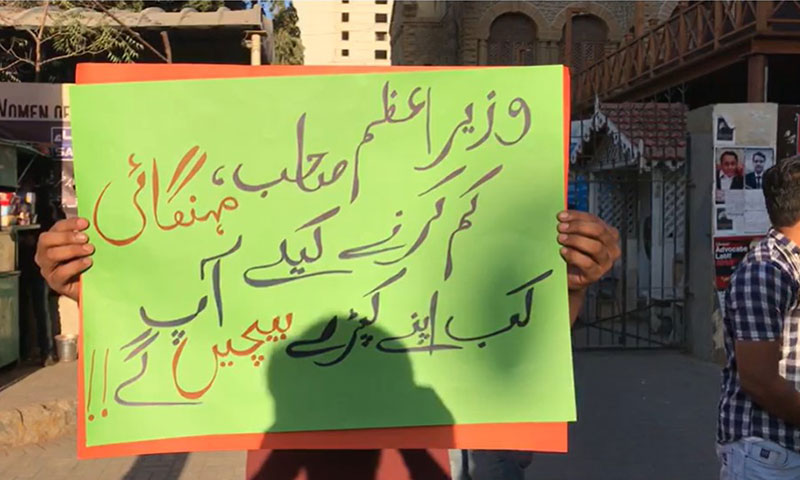 WOMEN OF
وزیر اعظم صاحب، مہنگائی
کم کرنے کیلے آپ
کب اپنے کپڑے بیچیں گے!!
Advocate